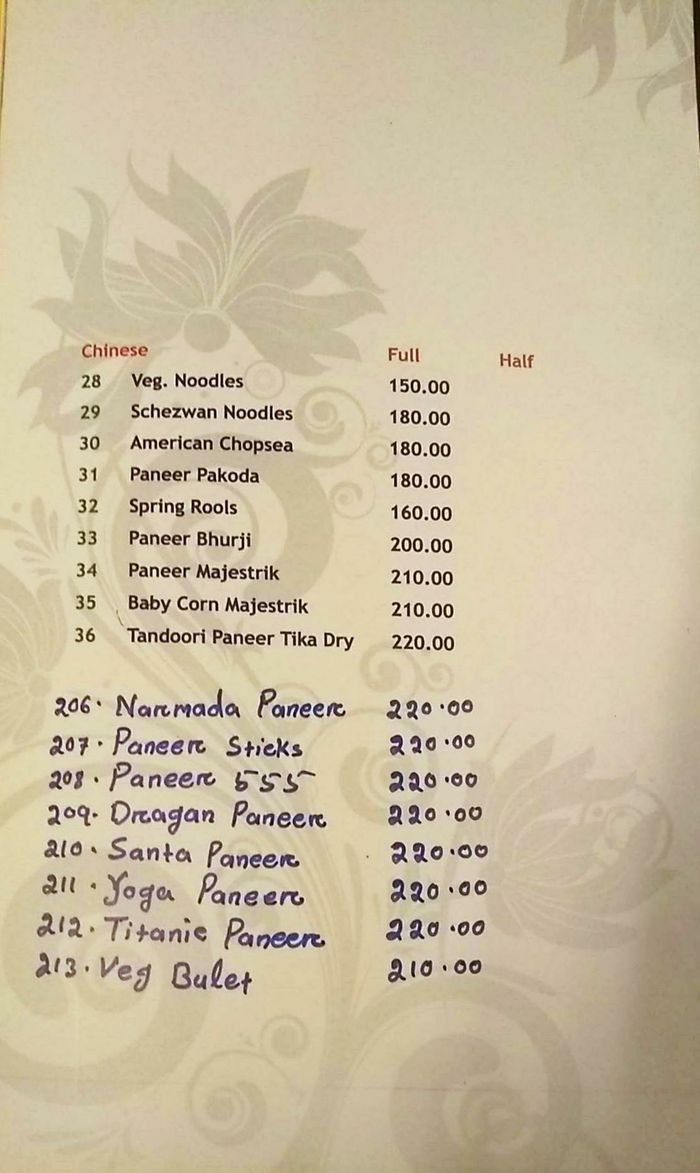 Chinese Full Half
28 Veg. Noodles 150.00
29 Schezwan Noodles 180.00
30 American Chopsea 180.00
31 Paneer Pakoda 180.00
32 Spring Rools 160.00
33 Paneer Bhurji 200.00
34 Paneer Majestrik 210.00
35 Baby Corn Majestrik 210.00
36 Tandoori Paneer Tika Dry 220.00
206. Narmada Paneer 220.00
207. Paneer Sticks 220.00
208. Paneer 555 220.00
209. Dragan Paneer 220.00
210. Santa Paneer 220.00
211. Yoga Paneer 220.00
212. Titanic Paneer 220.00
213. Veg Bulet 210.00